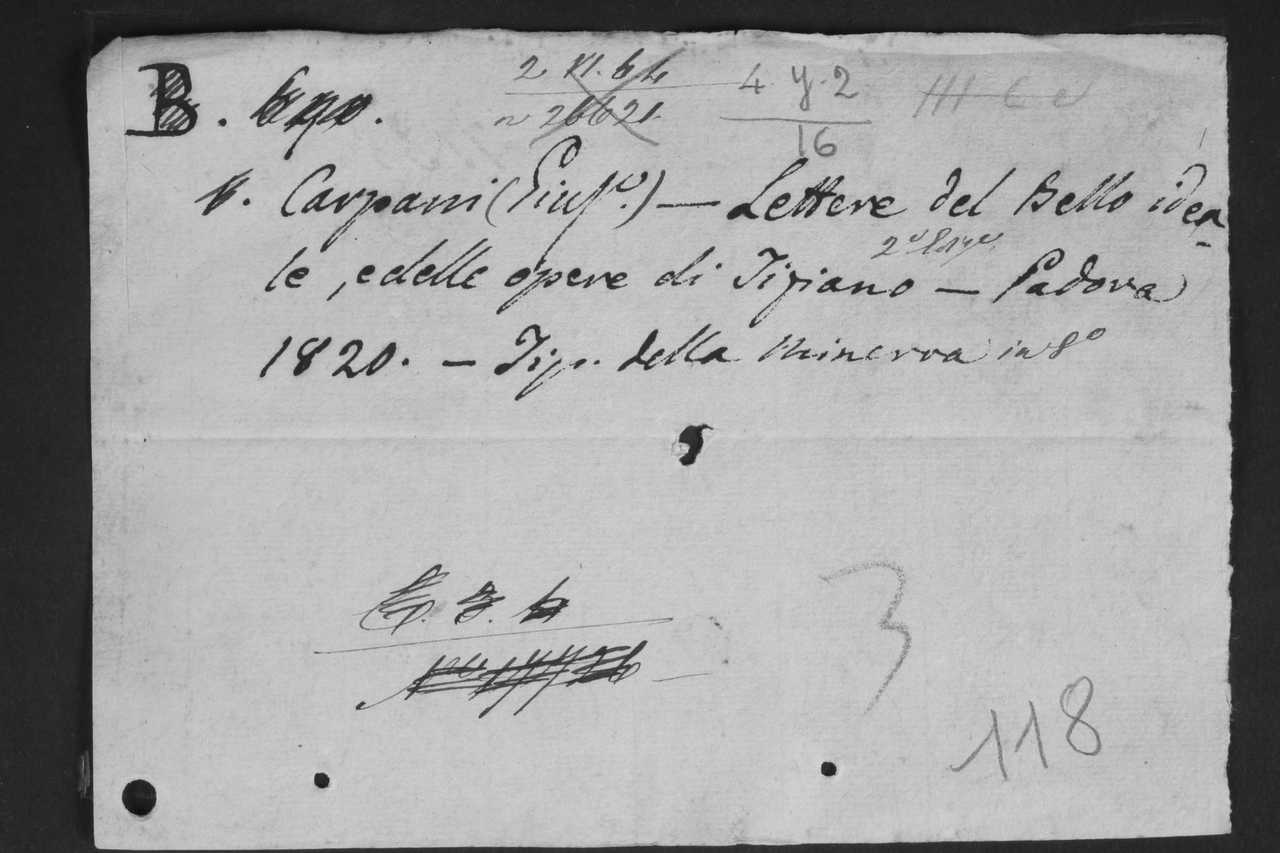 B.
2 VI. 64
n 26621
4 y. 2
16
Carpani (Giusᵉ.) — Lettere del Bello idea-
2ᵃ Ediz.
le, e delle opere di Tiziano — Padova
1820. — Tip. della Minerva in 8º
3
118